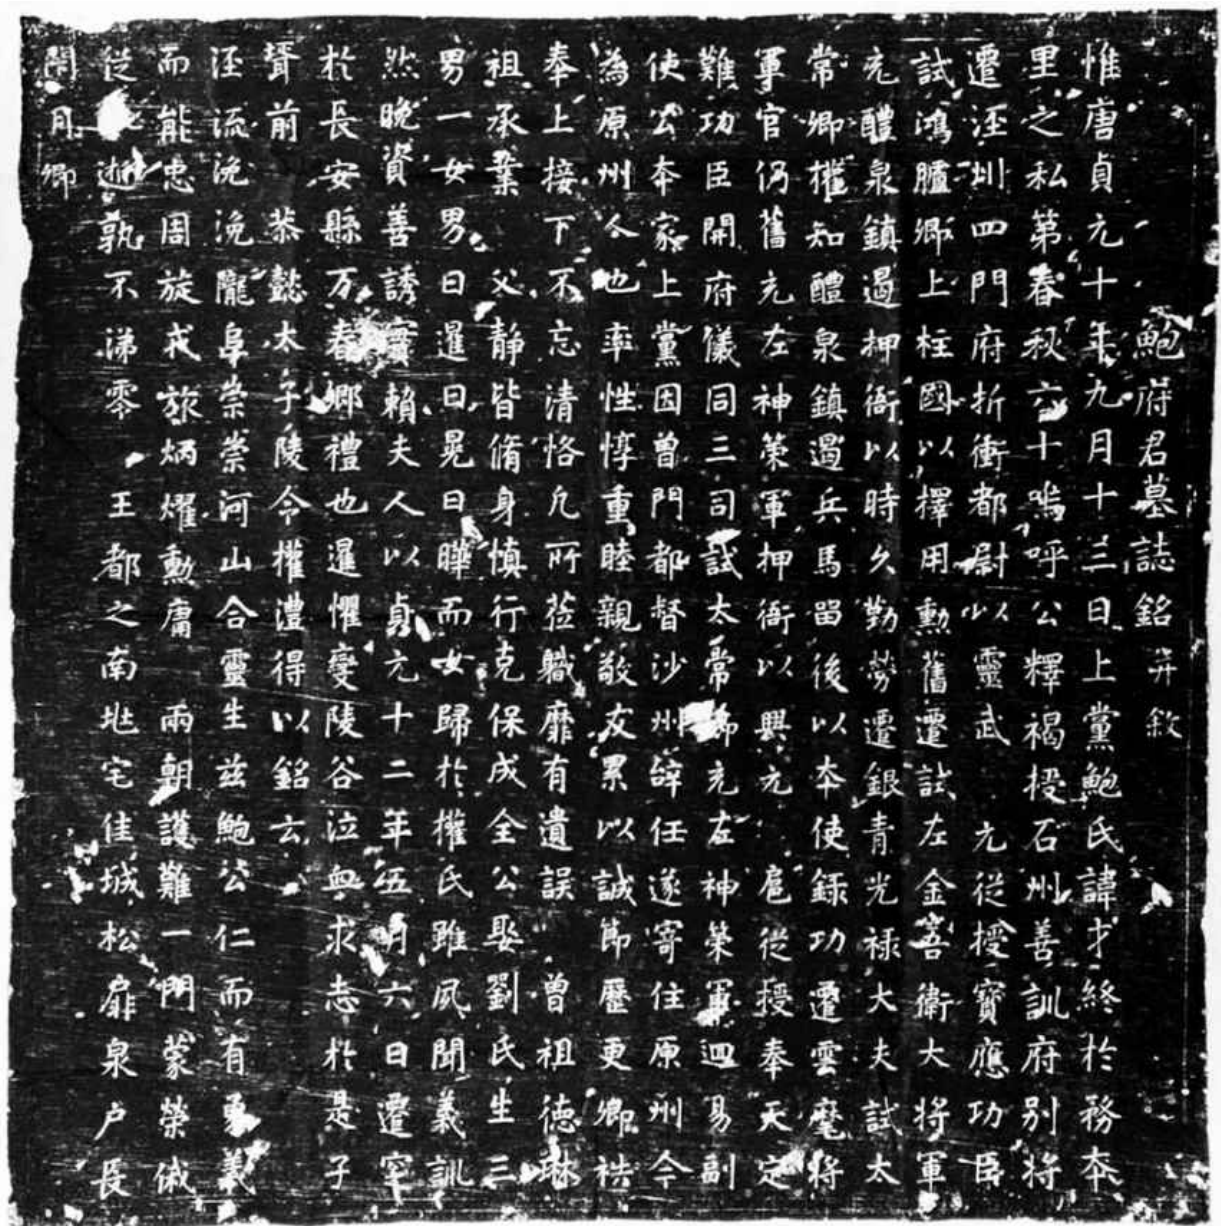 鮑府君墓誌銘并敘
惟唐貞元十年九月十三日上黨鮑氏諱才終於務夲
里之私第春秋六十嗚呼公釋褐授石州善訓府别將
遷涇州四門府折衝都尉以靈武元從授寶應功臣
試鴻臚卿上柱國以擇用勳舊遷試左金吾衛大將軍
充醴泉鎮遏押衙以時久勤勞遷銀青光禄大夫試太
常卿權知醴泉鎮遏兵馬留後以夲使録功遷雲麾將
軍官仍舊充左神策軍押衙以興元扈從授奉天定
難功臣開府儀同三司試太常卿充左神策軍迴易副
使公夲家上黨因曾門都督沙州辞任遂寄住原州今
為原州人也率性惇重睦親敬友累以誠節歷更卿袟
奉上接下不忘清恪凢所蒞職靡有遺誤曾祖德琳
祖承業父静皆脩身慎行克保成全公娶劉氏生三
男一女男曰暹曰晃曰曄而女歸於權氏雖夙聞義訓
然晚資善誘實賴夫人以貞元十二年五月六日遷窆
於長安縣万春鄉禮也暹懼變陵谷泣血求志於是子
聲前恭懿太子陵令權澧得以銘云
涇流浼浼隴阜崇崇河山合靈生兹鮑公仁而有勇義
而能忠周旋戎旅炳燿勳庸兩朝護難一門蒙榮俄
從逝孰不涕零王都之南地宅佳城松扉泉户長
閇月卿